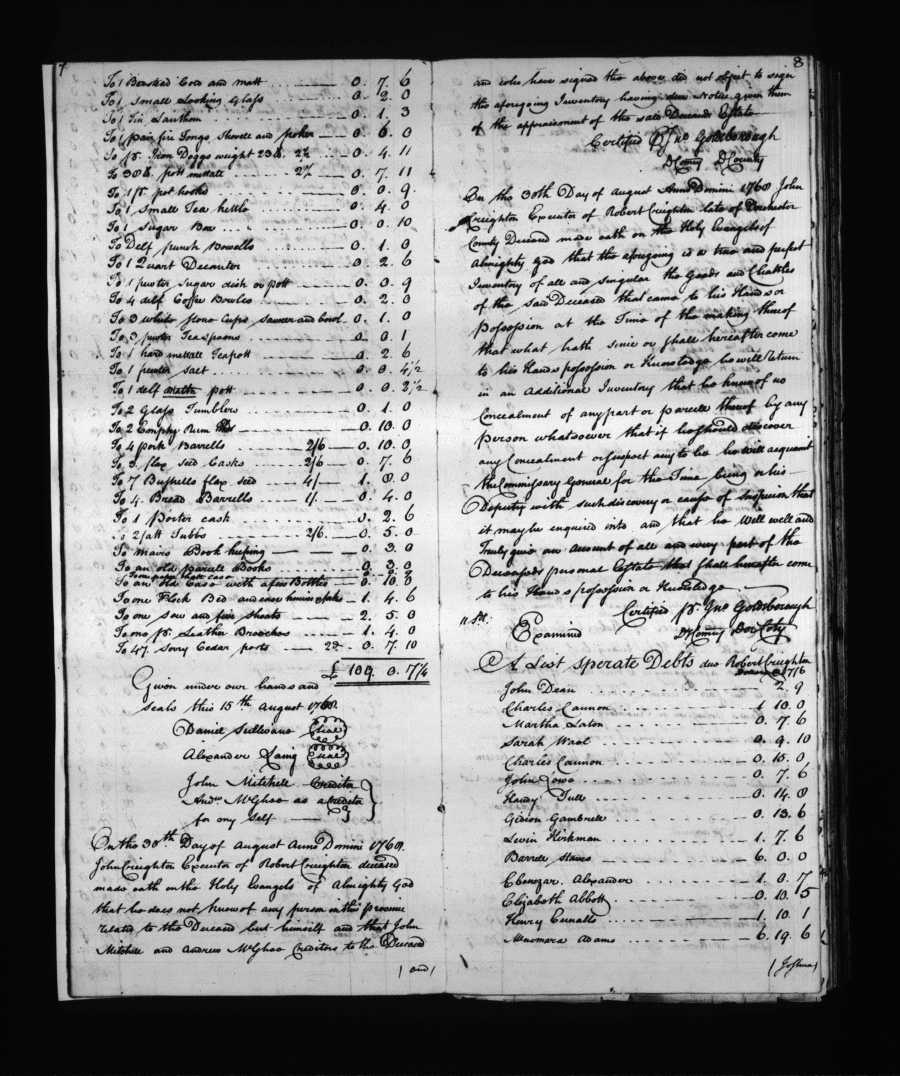 7
To 1 Bedstead Cord and matt 0. 7. 6
To 1 Small Looking Glass 0. 2. 0
To 1 Tin Lanthorn 0. 1. 3
To 1 pair fire Tongs Shovell and poker 0. 6. 0
To 1 pr. Iron Doggs weight 23 lb. 2½ 0. 4. 11
To 38 lb. pott mettale 2½ 0. 7. 11
To 1 pr. pot hooks 0. 0. 9.
To 1 Small Tea kettle 0. 4. 0
To 1 Sugar Box 0. 0. 10
To Delf punch Bowells 0. 1. 0
To 1 Quart Decanter 0. 2. 6
To 1 pewter Sugar dish or pott 0. 0. 9
To 4 delf Coffee Bowles 0. 2. 0
To 3 white stone Cups, Sawcer and bowl 0. 1. 0
To 3 pewter Teaspoons 0. 0. 1
To 1 hard mettale Teapott 0. 2. 6
To 1 pewter Salt 0. 0. 4½
To 1 delf pott 0. 0. 2½
To 2 Glass Tumblers 0. 1. 0
To 2 Emphy Rum 0. 10. 0
To 4 pork Barrells 2/6 0. 10. 0
To 3 flax seed Casks 2/6 0. 7. 6
To 7 Bushells flax seed 4/ 1. 8. 0
To 4 Bread Barrells 1/. 0. 4. 0
To 1 Porter cask 0. 2. 6
To 2 fatt Tubbs 2/6 0. 5. 0
To mairs Book keeping 0. 3. 0
To an old parcell Books 0. 3. 0
To an old Case with a few Bottles 0. 10. 0
To one Flock Bed and case 1. 4. 6
To one sow and five Shoats 2. 5. 0
To one pr. Leather Breeches 1. 4. 0
To 47. Sorry Cedar posts 2d 0. 7. 10
£ 109. 0. 7¼
Given under our hands and
seals this 15th August 1768.
Daniel Sullivane Seal
Alexander Laing Seal
John Mitchell Creditor
Andw. McGhee as a Creditor
for my self
On the 30th Day of August Anno Domini 1768.
John Creighton Executor of Robert Creighton deceased
made oath on the Holy Evangels of Almighty God
that he does not know of any person in this province
related to the Deceased but himself and that John
Mitchell and Andrew McGhee Creditors to the Deceased
/ and /
8
and who have signed the above did not object to sign
the aforegoing Inventory having due Notice given them
of the appraisement of the said Deceaseds Estate
Certified Pr Jno Goldsborough
D Comry D County
On the 30th Day of August Anno Domini 1768 John
Creighton Executor of Robert Creighton late of Dorchester
County Deceased made oath on the Holy Evangels of
Almighty god that the aforegoing is a true and perfect
Inventory of all and singular the Goods and Chattles
of the said Deceased that came to his Hands or
possession at the Time of the making thereof
that what hath since or shall hereafter come
to his Hands possession or Knowledge he will Return
in an Additional Inventory that he knows of no
Concealment of any part or parcell thereof by any
person whatsoever that if he should discover
any Concealment or suspect any to be he will acquaint
the Commissary General for the Time being or his
Deputy with such discovery or cause of Suspicion that
it may be enquired into and that he will well and
Truly give an Account of all and every part of the
Deceaseds personal Estate that shall hereafter come
to his Hands possession or Knowledge
Certified pr. Jno Goldsborough
Examined D Comry Dor Coty
A List Sperate Debts due Robert Creighton
John Dean 2. 9
Charles Cannon 1 10. 0
Martha Laton 0. 7. 6
Sarah Wool 0. 9. 10
Charles Cannon 0. 15. 0
John Lowe 0. 7. 6
Handy Tull 0. 14. 8
Gideon Gambrell 0. 13. 6
Levin Hickman 1. 7. 6
Barrell Staves 6. 0. 0
Ebenezar Alexander 1. 0. 7
Elizabeth Abbott 0. 10. 5
Henry Ennalls 1. 10. 1
Adams 6. 19. 6
/ Joshua /